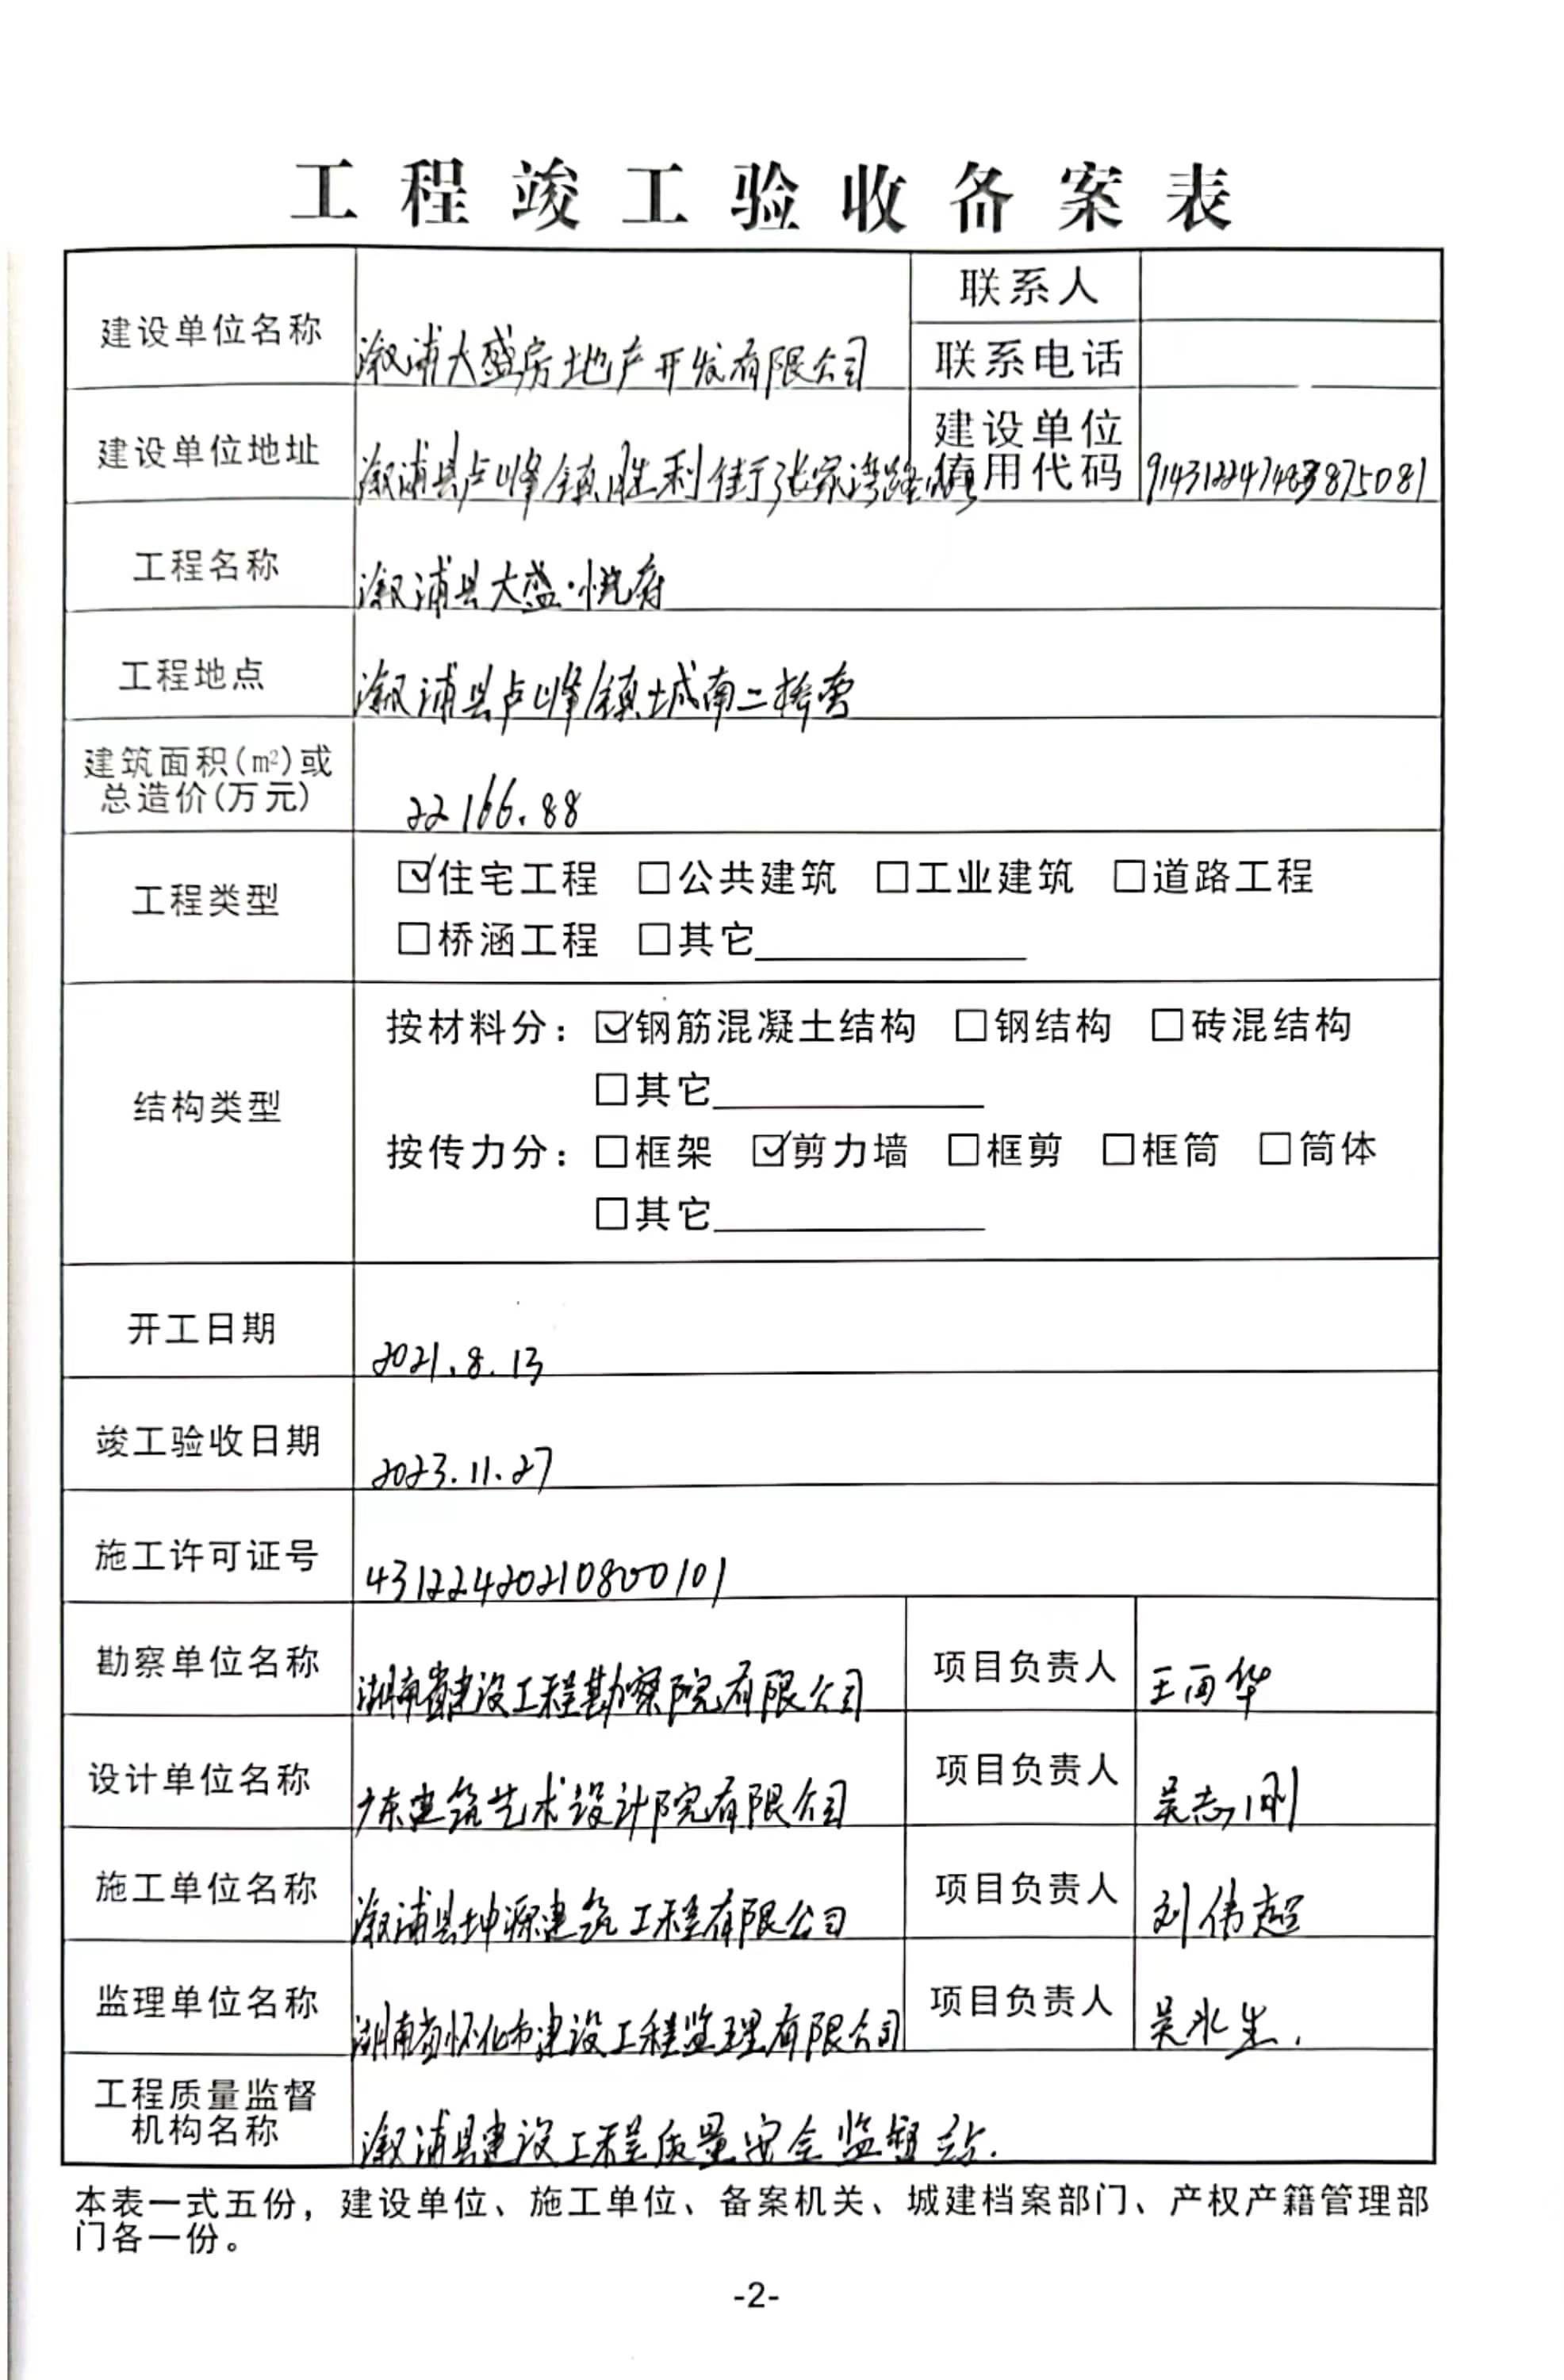 工程竣工验收备案表
建设单位名称 溆浦大盛房地产开发有限公司 联系人
联系电话
建设单位地址 溆浦县卢峰镇胜利街张家湾路 建设单位
信用代码
工程名称 溆浦县大盛·悦府
工程地点 溆浦县卢峰镇城南二桥旁
建筑面积(m²)或
总造价(万元) 22166.88
工程类型 ☑住宅工程 □公共建筑 □工业建筑 □道路工程
□桥涵工程 □其它
结构类型 按材料分：☑钢筋混凝土结构 □钢结构 □砖混结构
□其它
按传力分：□框架 ☑剪力墙 □框剪 □框筒 □筒体
□其它
开工日期 2021.8.13
竣工验收日期 2023.11.27
施工许可证号 431224202108000101
勘察单位名称 湖南省建设工程勘察院有限公司 项目负责人
设计单位名称 广东建筑艺术设计院有限公司 项目负责人 吴志刚
施工单位名称 溆浦县坤源建筑工程有限公司 项目负责人 刘伟超
监理单位名称 湖南省怀化市建设工程监理有限公司 项目负责人
工程质量监督
机构名称 溆浦县建设工程质量安全监督站.
本表一式五份，建设单位、施工单位、备案机关、城建档案部门、产权产籍管理部
门各一份。
-2-